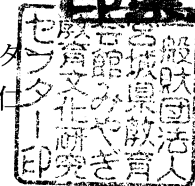 一般財団法人
宮城県教育
会館みやぎ
教育文化研究
センター印